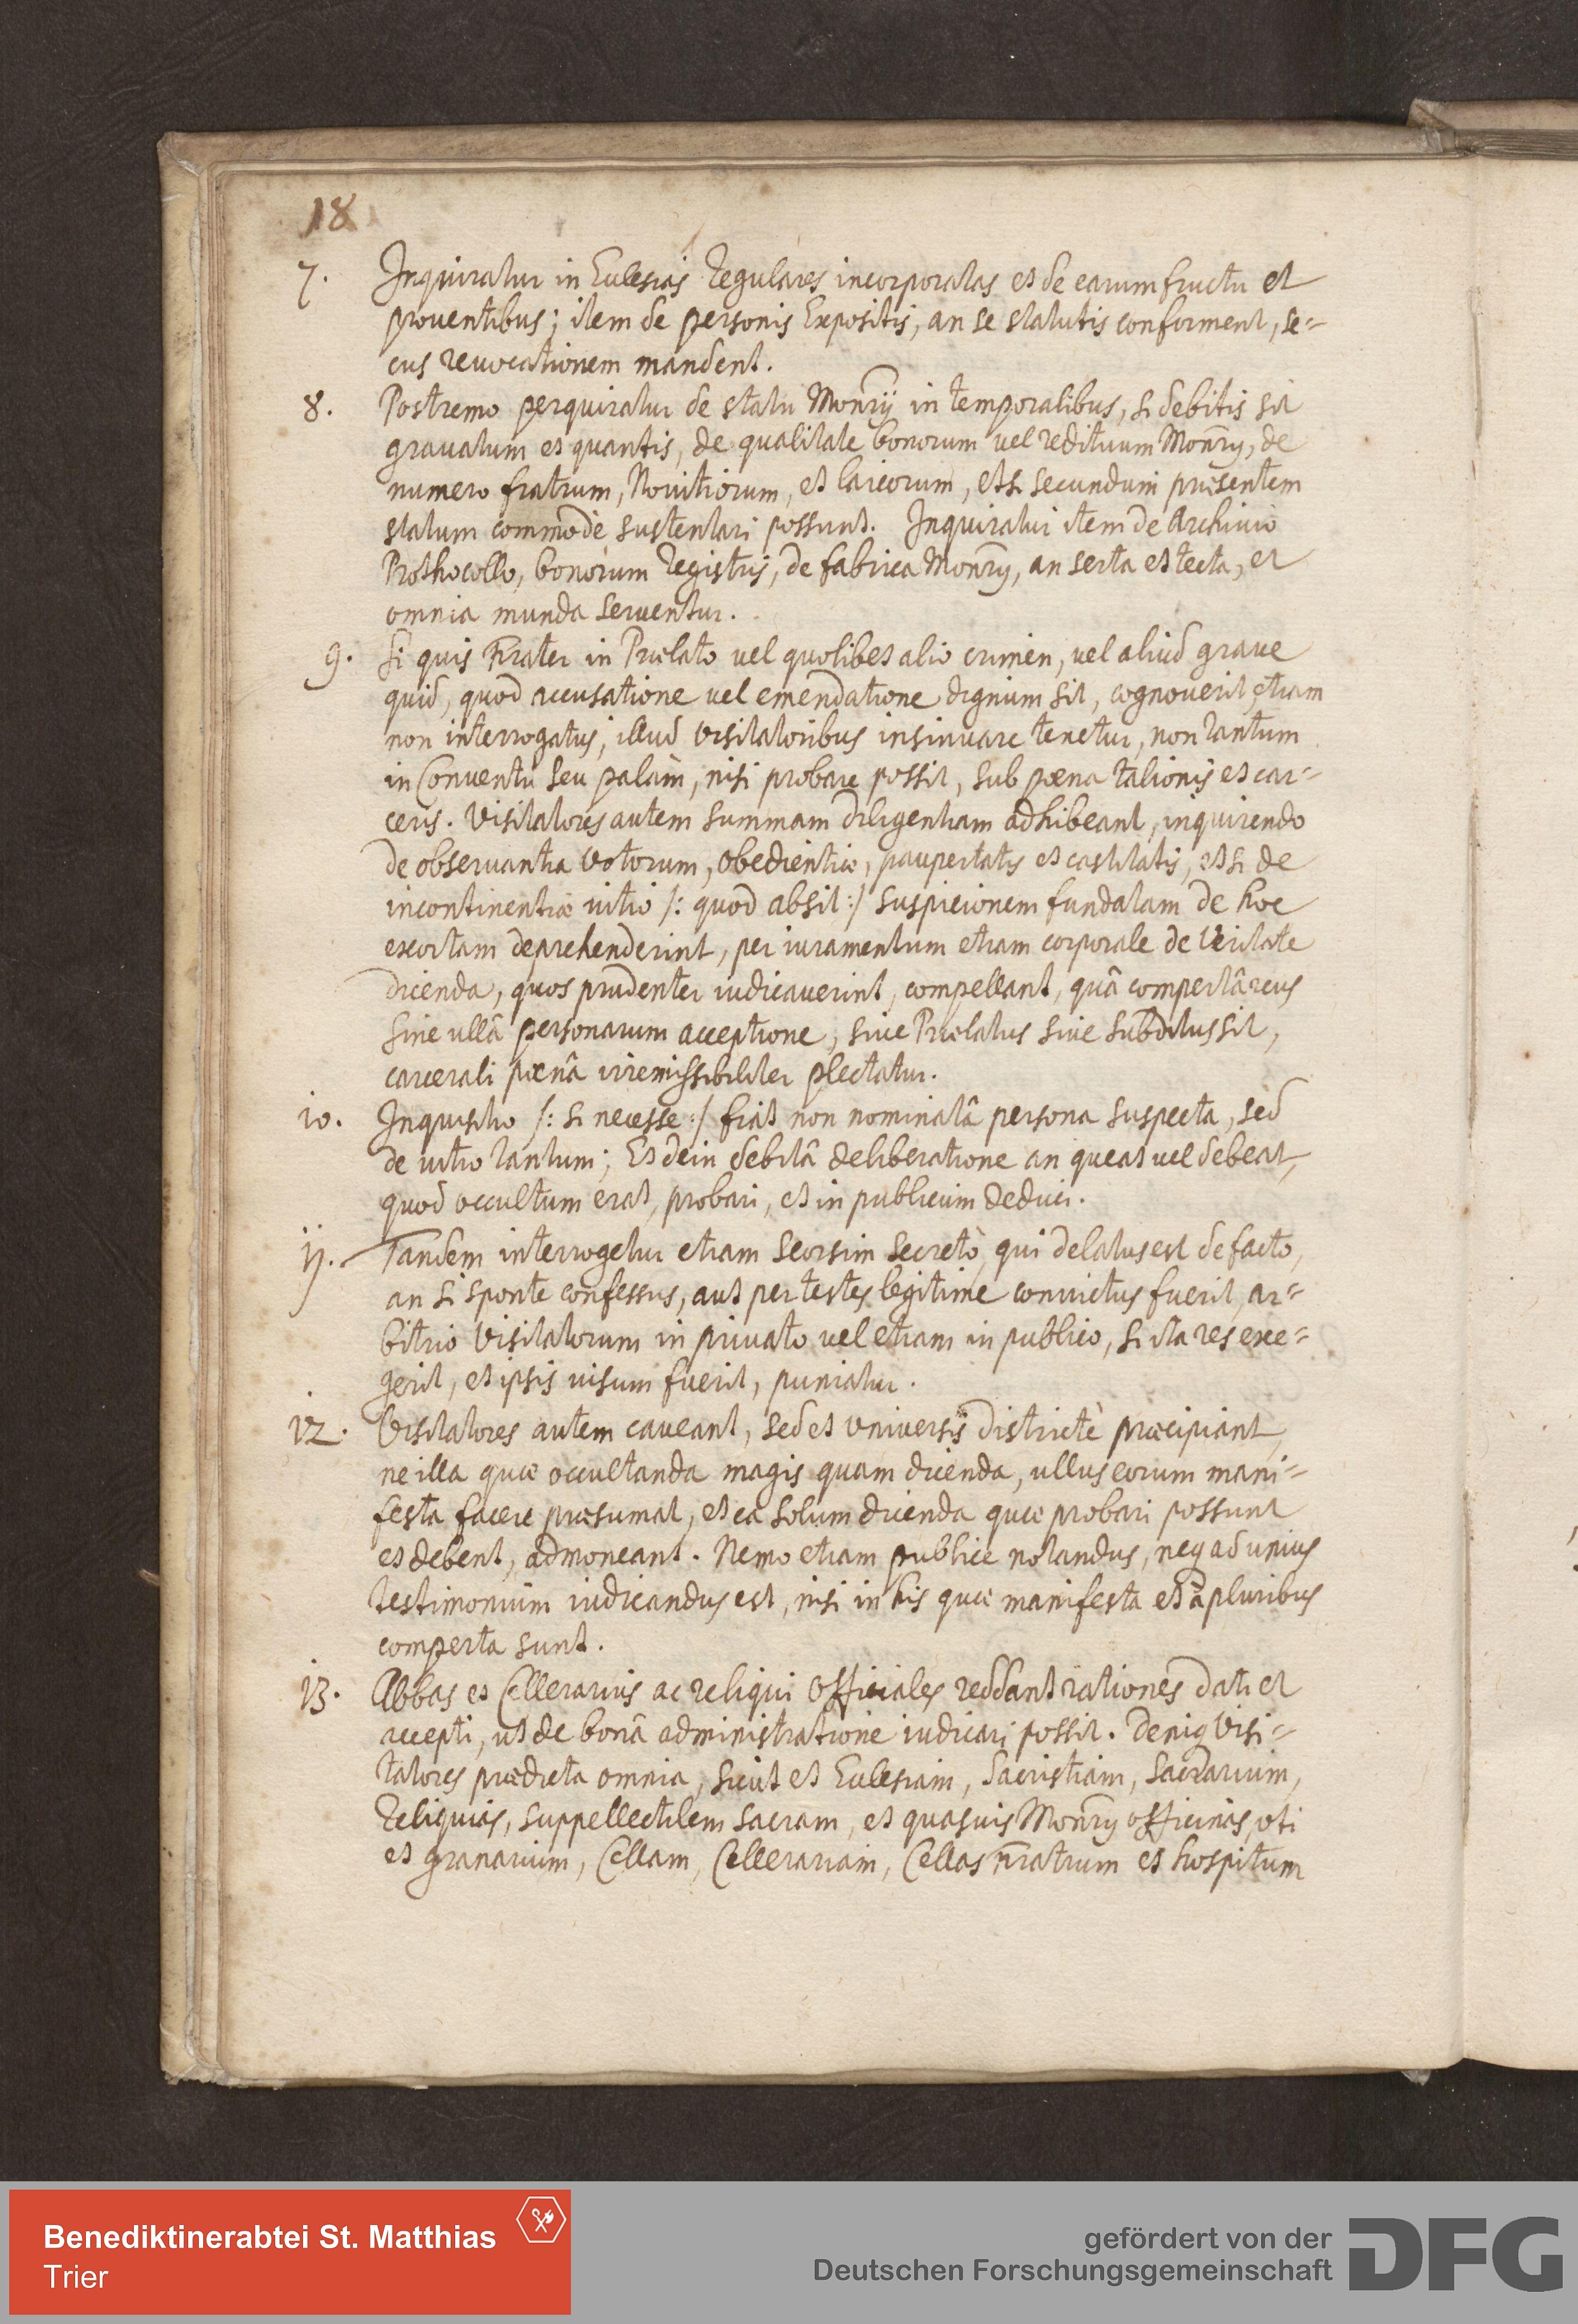 18
7. Inquiratur in Ecclesias regulares incorporatas et de earum fructu et
prouentibus; item de personis Expositis, an se statutis conforment, se=
cus reuocationem mandent.
8. Postremo perquiratur de statu Monrij in temporalibus, si debitis sit
grauatum et quantis, de qualitate bonorum vel redituum Monrij, de
numero fratrum, Nouitiorum, et laicorum, et si secundum præsentem
statum commodè sustentari possunt. Inquiratur item de Archiuio
Prothocollo, bonorum Registris, de fabrica Monrij, an serta et tecta, et
omnia munda seruentur.
9. Si quis Frater in Prælato vel quolibet alio crimen, vel aliud graue
quid, quod accusatione vel emendatione dignum sit, cognouerit, etiam
non interrogatus, illud Visitatoribus insinuare tenetur, non tantum
in Conventu seu palàm, nisi probare possit, sub pœna talionis et car=
ceris. Visitatores autem summam diligentiam adhibeant, inquirendo
de obseruantia Votorum, obedientiæ, paupertatis et castitatis, et si de
incontinentiæ uitio /: quod absit :/ suspicionem fundatam de hoc
exortam deprehenderint, per iuramentum etiam corporale de Veritate
dicenda, quos prudenter iudicauerint, compellant, quâ compertâ reus
sine ullâ personarum acceptione, siue Prælatus siue subditus sit,
carcerali pœnâ irremissibiliter plectatur.
io. Inquisitio /: si necesse :/ fiat non nominatâ persona suspecta, sed
de uitio tantum; Et dein debitâ deliberatione an queat vel debeat,
quod occultum erat, probari, et in publicum deduci.
ij. Tandem interrogetur etiam seorsim secretò, qui delatus est de facto,
an si sponte confessus, aut per testes legitime conuictus fuerit, ar=
bitrio Visitatorum in priuato vel etiam in publico, si ita res exe=
gerit, et ipsis uisum fuerit, puniatur.
i2. Visitatores autem caveant, sed et Vniversis districtè præcipiant,
ne illa quæ occultanda magis quam dicenda, ullus eorum mani=
festa facere præsumat, et ea solum dicenda quæ probari possunt
et debent, admoneant. Nemo etiam publice notandus, neq ad unius
testimonium iudicandus est, nisi in his quæ manifesta et à pluribus
comperta sunt.
i3. Abbas et Cellerarius ac reliqui Officiales reddant rationes dati et
accepti, ut de bonâ administratione iudicari possit. Deniq Visi=
tatores prædicta omnia, sicut et Ecclesiam, Sacristiam, Sacrarium,
Reliquias, suppellectilem sacram, et quasuis Monrij officinas, uti
et granarium, Cellam, Cellerariam, Cellas Fratrum et hospitum
Benediktinerabtei St. Matthias
Trier
gefördert von der
Deutschen Forschungsgemeinschaft
DFG